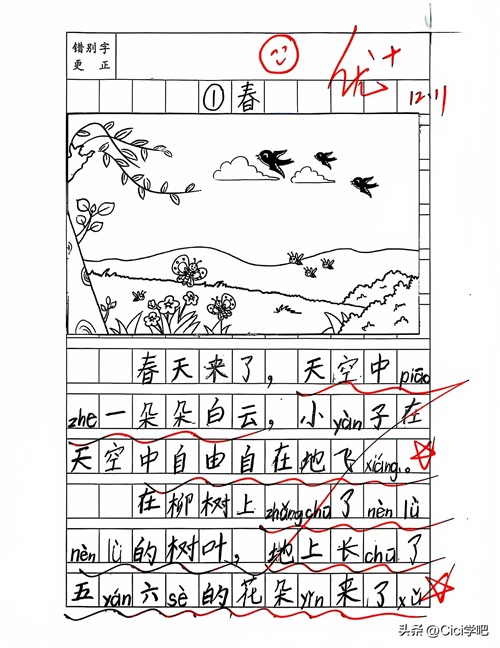 错别字
更 正
优+
12.11
①春
春天来了，天空中piāo
zhe一朵朵白云，小yàn子在
天空中自由自在地飞xiáng。
在柳树上zhǎngchū了nèn lǜ
nèn lǜ的树叶，地上长chū了
五yán六sè的花朵yǐn来了xǔ
头条 @Cici学吧